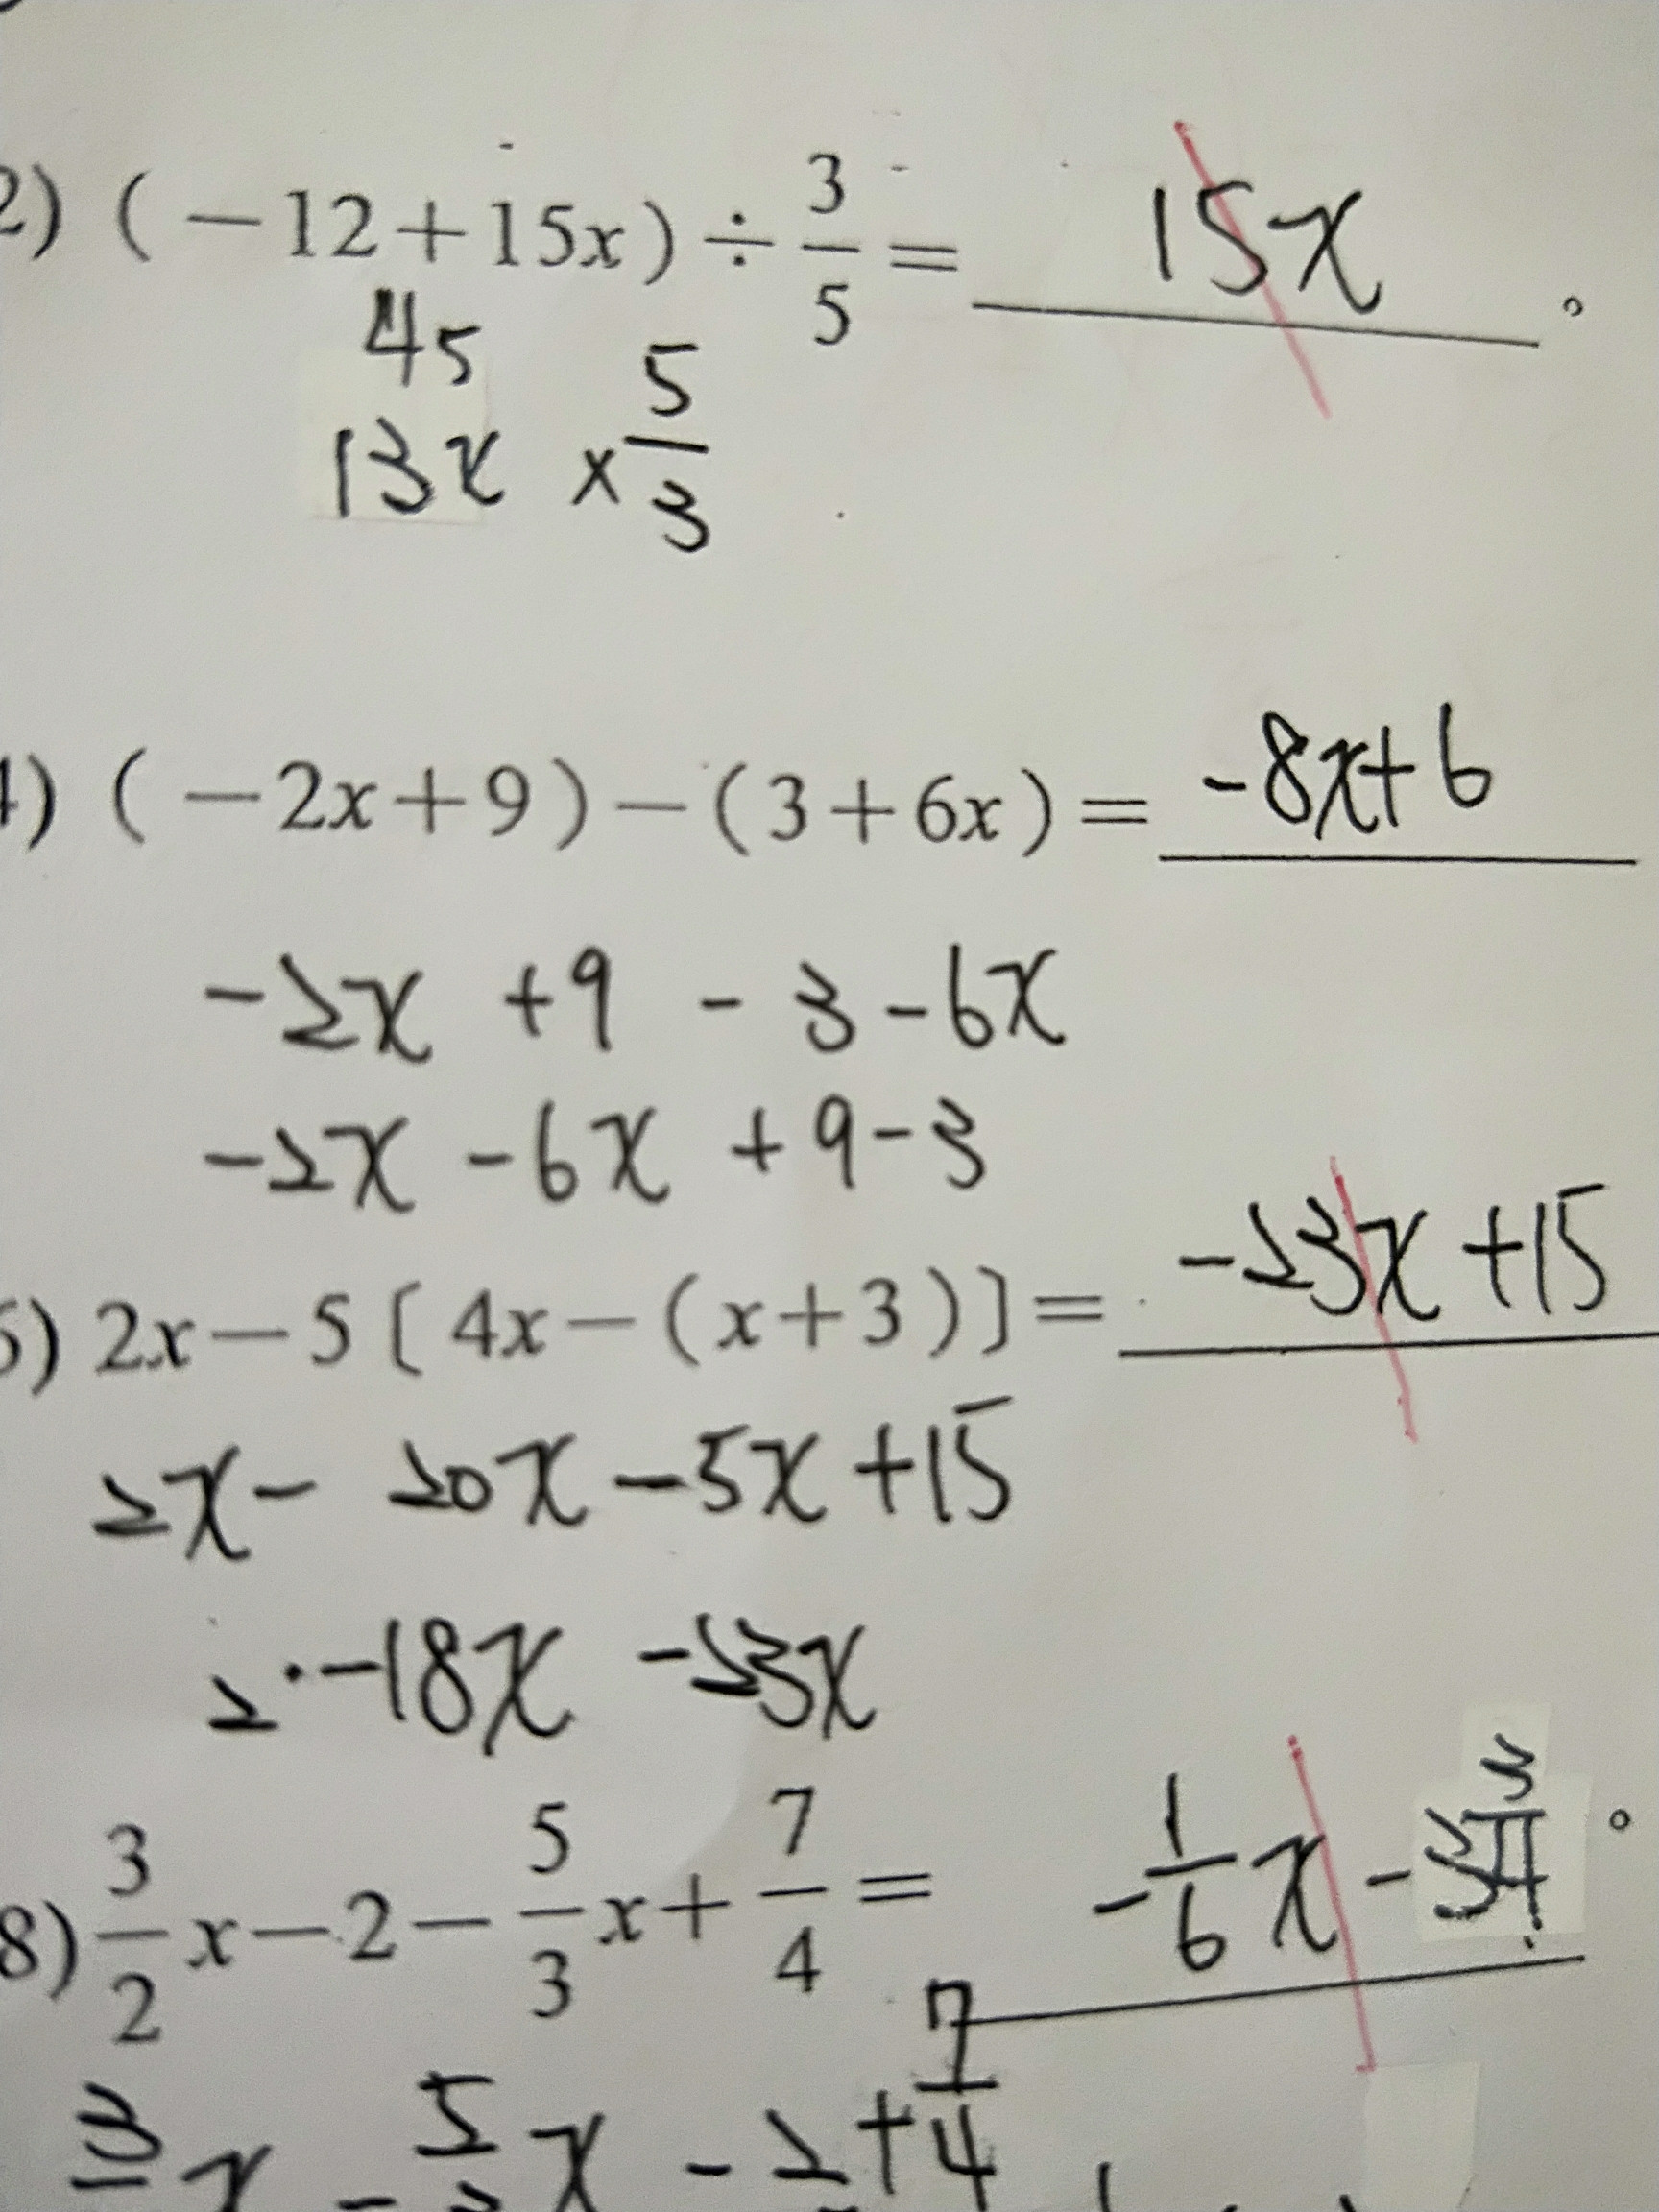 2) (−12+15x)÷3/5= 15x 。
45
13x ×5/3
4) (−2x+9)−(3+6x)= -8x+6
-2x +9 - 3 -6x
-2x -6x +9-3
6) 2x−5[4x−(x+3)]= -23x+15
2x- 20x -5x +15
2 -18x -23x
8) 3/2x−2−5/3x+7/4= -1/6x - 。
x - 5 x - 2 + 7/4